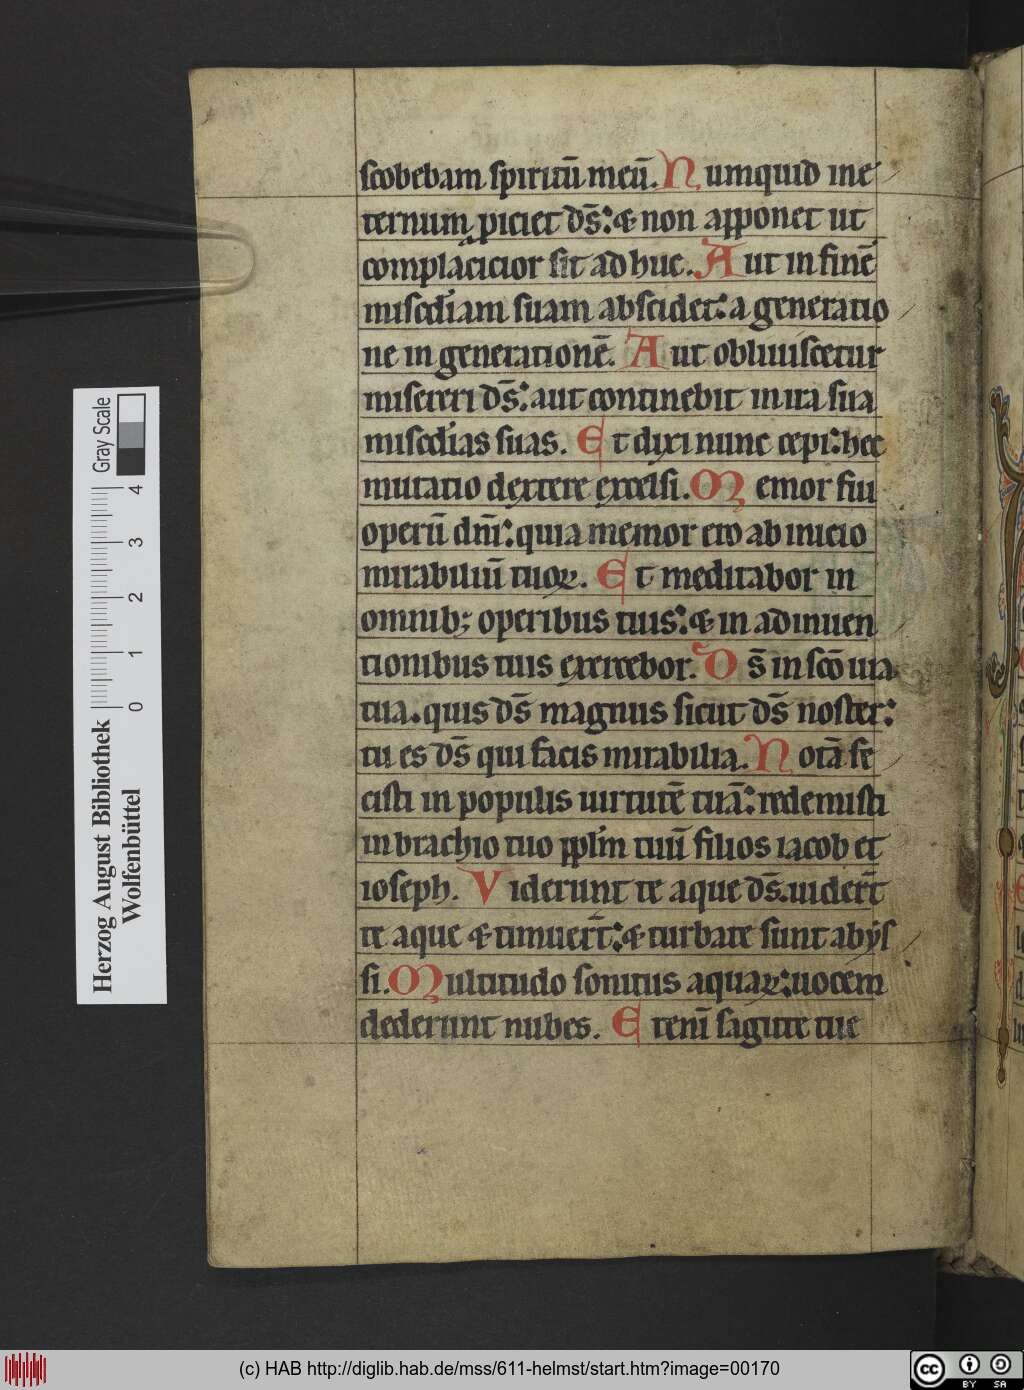 scobebam spiritū meū. Numquid in e
ternum ꝓiciet ds̄: & non apponet ut
complacicior sit ad huc. Aut in finē
misc̄diam suam abscidet: a generatio
ne in generationē. Aut obliuiscetur
misereri ds̄: aut continebit in ira sua
misc̄dias suas. Et dixi nunc cepi: hec
mutatio dextere excelsi. Memor fui
operū dn̄i: quia memor ero ab inicio
mirabiliū tuoꝝ. Et meditabor in
omnib; operibus tuis: & in adinuen
tionibus tuis exercebor. Ds̄ in sc̄o uia
tua. quis ds̄ magnus sicut ds̄ noster:
tu es ds̄ qui facis mirabilia. Notā fe
cisti in populis uirtutē tuā: redemisti
in brachio tuo ppl̄m tuū filios iacob et
ioseph. Viderunt te aque ds̄. uider̄t
te aque & timuer̄t: & turbate sunt abys
si. Multitudo sonitus aquaꝝ: uocem
dederunt nubes. Etenī sagitte tue
Herzog August Bibliothek
Wolfenbüttel
0 1 2 3 4
Gray Scale
(c) HAB http://diglib.hab.de/mss/611-helmst/start.htm?image=00170
cc BY SA